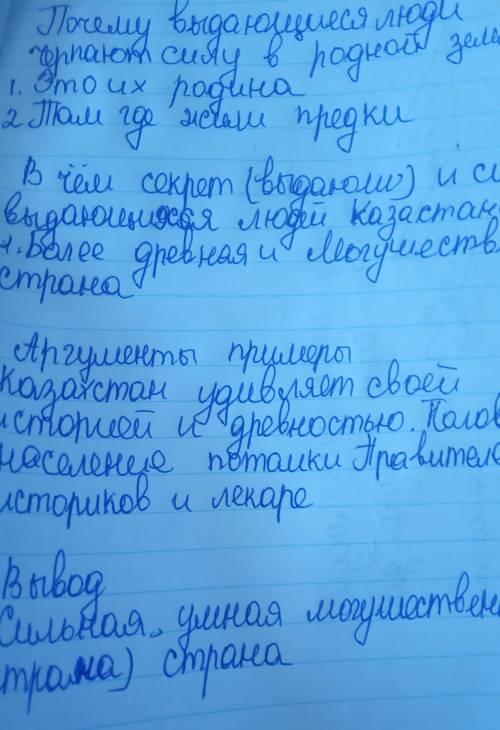 Почему выдающиеся люди
черпают силу в родной земл
1. Это их родина
2 Там где жили предки
В чём секрет (выдаюш) и си
выдающихся людей Казастан
1. Более древная и Могушеств
страна
Аргументы примеры
Казахстан удивляет своей
историей и древностью. Полов
население потомки Правителе
историков и лекаре
Вывод
Сильная, умная могушествен
трана) страна